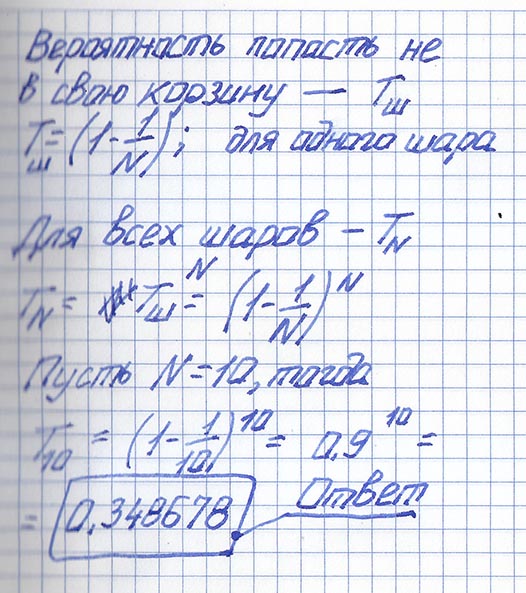 Вероятность попасть не
в свою корзину — Tш
Tш = (1 - 1/N); для одного шара
Для всех шаров - T_N
T_N = Tш^N = (1 - 1/N)^N
Пусть N = 10, тогда
T_10 = (1 - 1/10)^10 = 0,9^10 =
= 0,348678 Ответ